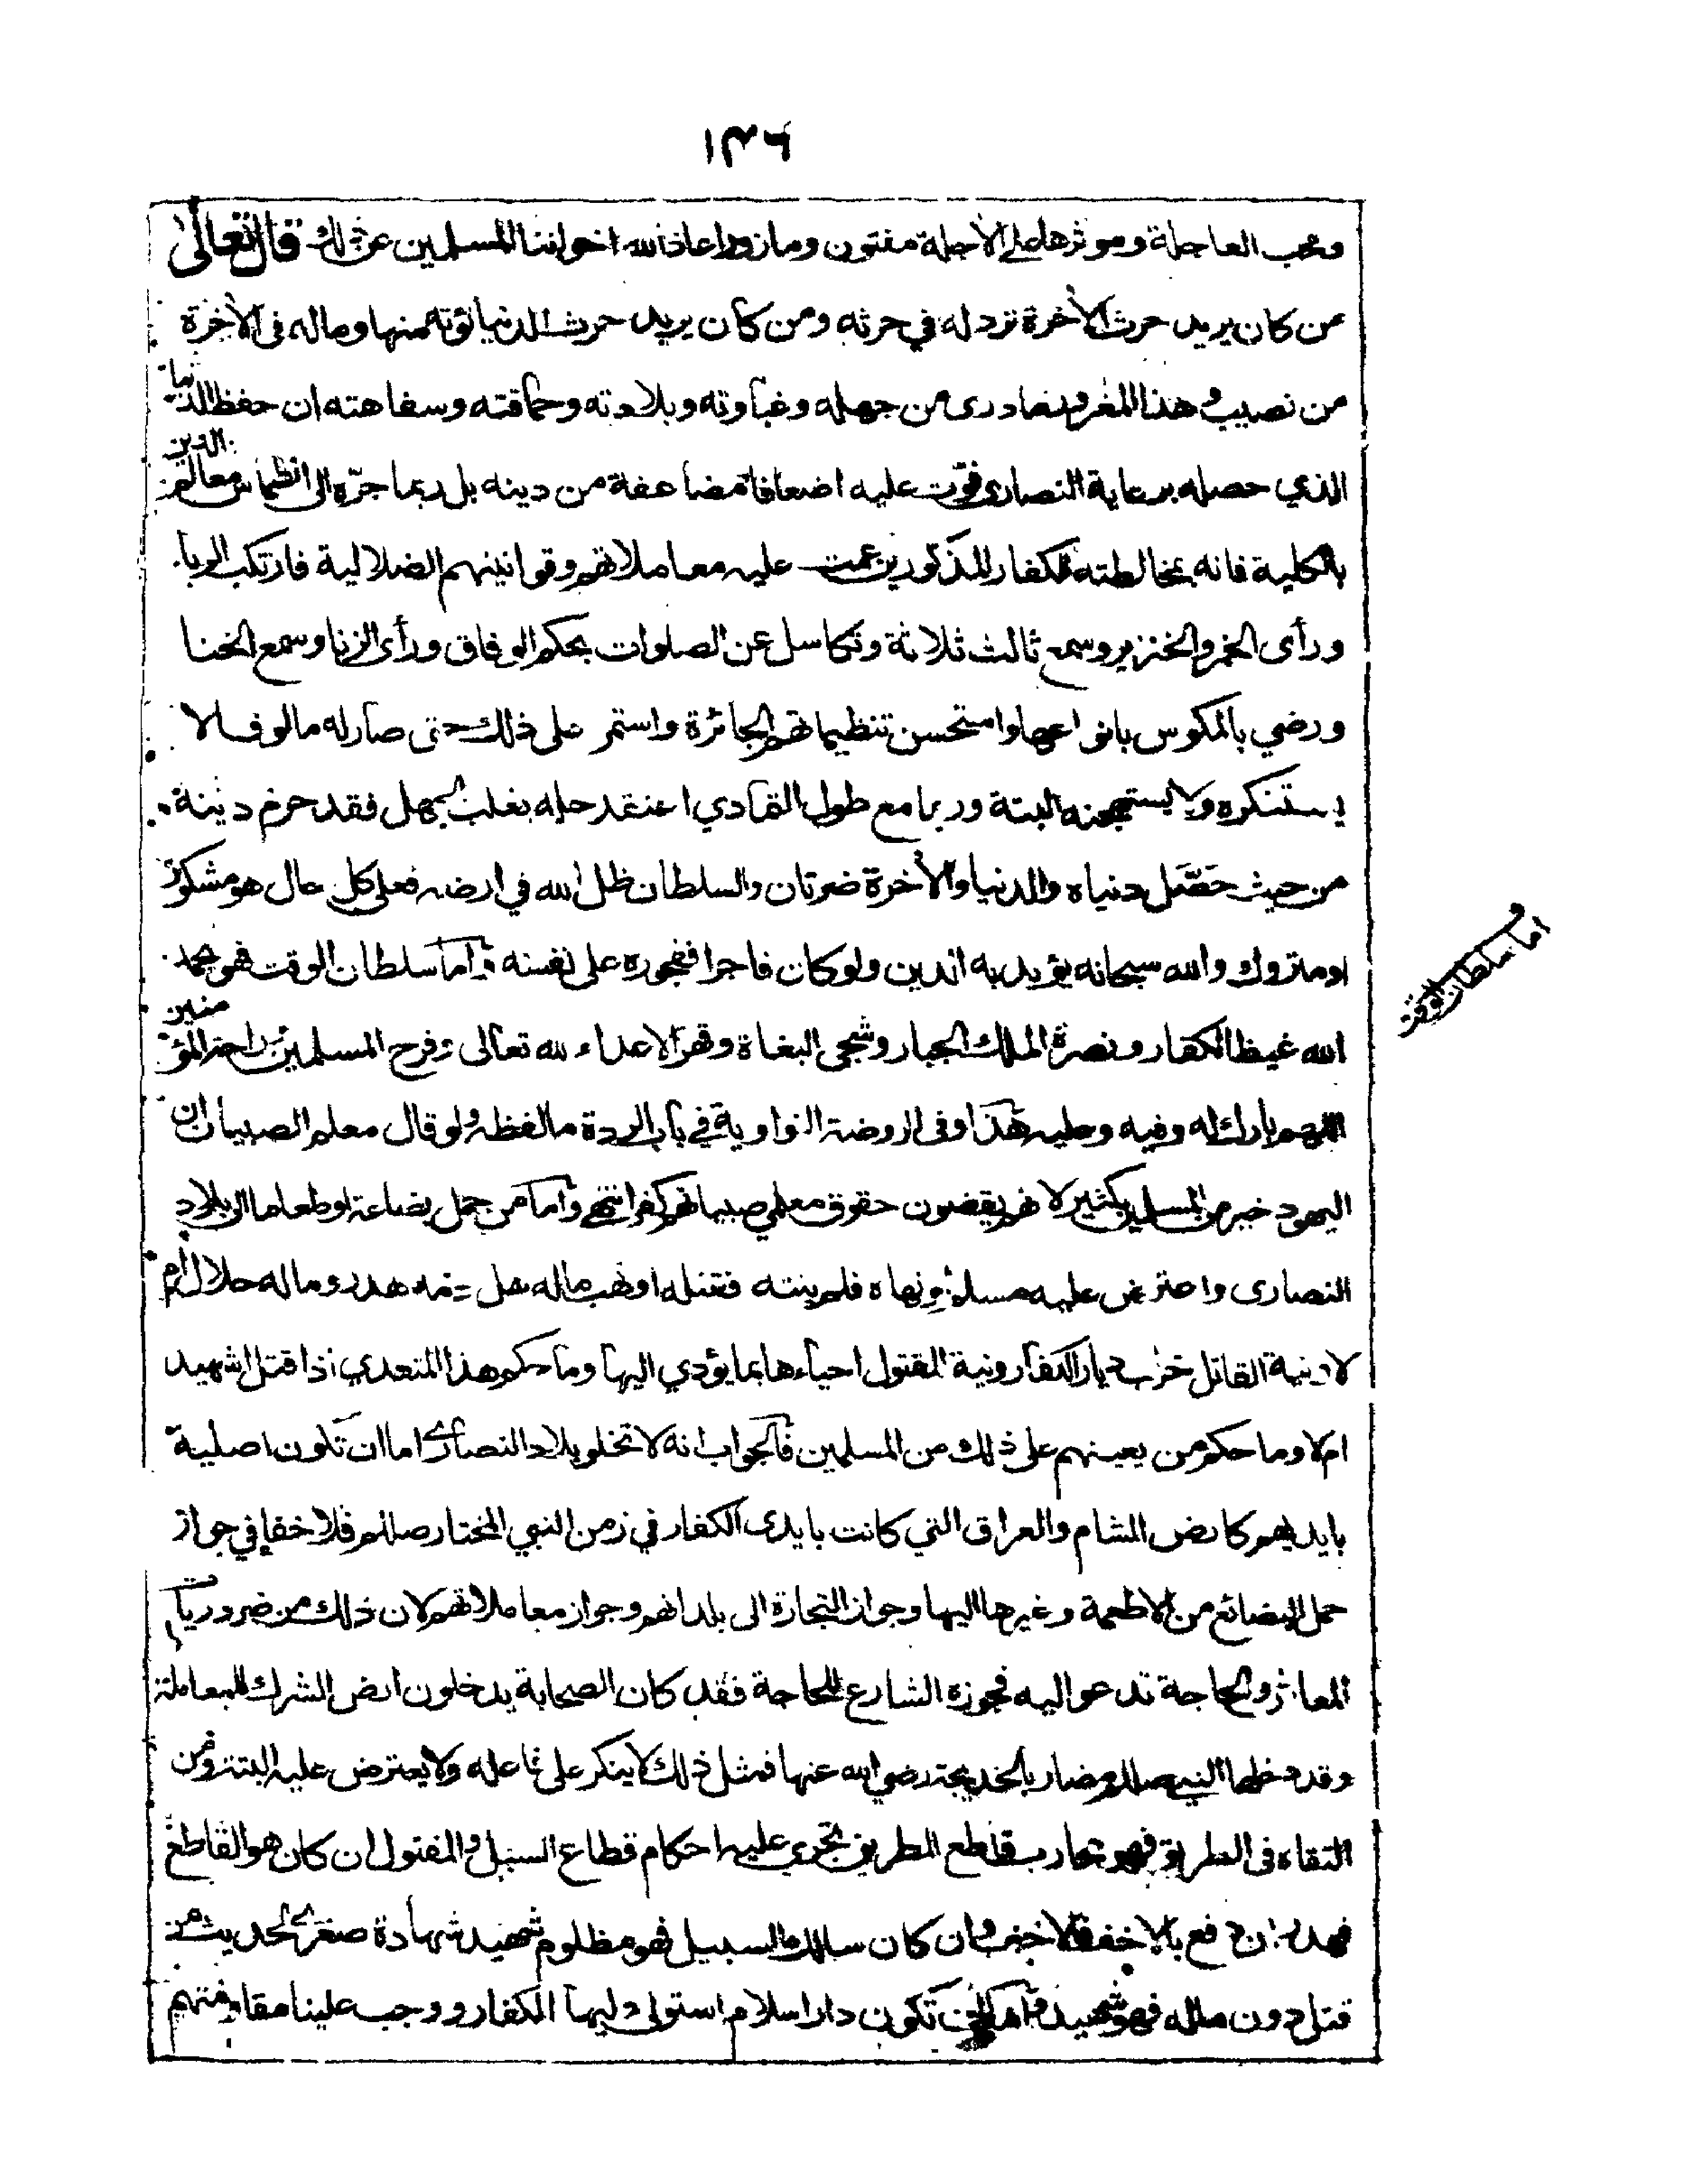 ١٣٦
ومحب العاجلة وموثرها على الأجلة مفتون ومازور اعاذ الله اخواننا المسلمين عن ذلك قال تعالى
من كان يريد حرث الأخرة نزد له في حرثه ومن كان يريد حرث الدنيا نؤته منها وماله فى الأخرة
من نصيب وهذا المغرور ما درى من جهله وغباوته وبلادته وحماقته وسفاهته ان حفظ الدنيا
الذي حصله برعاية النصارى فوّت عليه اضعافا مضاعفة من دينه بل ربما جرّه الى انطماس معالم الدين
بالكلية فانه بمخالطته للكفار المذكورين عمت عليه معاملاتهم وقوانينهم الضلالية فارتكب الربا
ورأى الخمر والخنزير وسمع ثالث ثلاثة وتكاسل عن الصلوات بحكم الوفاق ورأى الزنا وسمع الخنا
ورضي بالمكوس بانواعها وامتحسن تنظيماتهم الجائرة واستمر على ذلك حتى صار له مالوفا لا
يستنكره ولا يستهجنه البتة وربما مع طول التمادي اعتقد حله بغلب الجهل فقد حرم دينه
من حيث حَصَّل دنياه والدنيا والأخرة ضرتان والسلطان ظل الله في ارضه فعلى كل حال هو مشكور
او متروك والله سبحانه يؤيد به الدين ولو كان فاجرا ففجوره على نفسه واما سلطان الوقت فهو بحمد
الله غيظ الكفار ونصرة الملك الجبار وشجى البغاة وقهر الاعداء لله تعالى وفرح المسلمين راحة المؤمنين
اللهم بارك له وفيه وعليه هذا وفى الروضة النواوية في باب الردة ما لفظه ولو قال معلم الصبيان ان
اليهود خير من المسلمين بكثير لانهم يقضون حقوق معلمي صبيانهم كفر انتهى واما من حمل بضاعة او طعاما الى بلاد
النصارى واعترض عليه مسلم ونهاه فلم ينته فقتله او نهب ماله هل دمه هدر وماله حلال ام
لا ونية القاتل خراب ديار الكفار ونية المقتول احياءها بما يؤدي اليها وما حكم هذا المتعدي اذا قتل اشهيد
ام لا وما حكم من يعينهم على ذلك من المسلمين فالجواب انه لا تخلو بلاد النصارى اما ان تكون اصلية
بايديهم كارض الشام والعراق التي كانت بايدى الكفار في زمن النبي المختار صلعم فلا خفا في جواز
حمل البضائع من الاطعمة وغيرها اليها وجواز التجارة الى بلدانهم وجواز معاملاتهم لان ذلك من ضروريات
المعاش والحاجة تدعو اليه فجوزه الشارع للحاجة فقد كان الصحابة يدخلون ارض الشرك للمعاملة
وقد دخلها النبي صلعم مضاربا لخديجة رضي الله عنها فمثل ذلك لا ينكر على فاعله ولا يعترض عليه البتة ومن
التقاه فى الطريق فهو محارب قاطع الطريق تجري عليه احكام قطاع السبل والمقتول ان كان هو القاطع
فهدر ان دفع بالاخف فالاخف وان كان سالك السبيل فهو مظلوم شهيد شهادة صغرى لحديث من
قتل دون ماله فهو شهيد تكون دار اسلام استولى عليها الكفار ووجب علينا مقاومتهم
و
اما سلطان الوقت